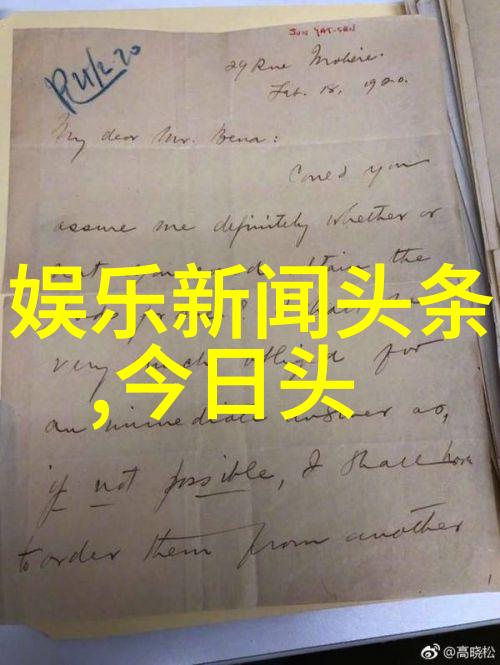 SUN YAT-SEN
R 21/2.20
29 Rue Molière.
Feb. 18, 1920.
My dear Mr. Bena:
Could you
assure me definitely whether or
not you could obtain the
娱乐新闻头条
very much obliged for
,今日头
an immediate answer as,
if not possible, I shall have
to order them from another
@高晓松